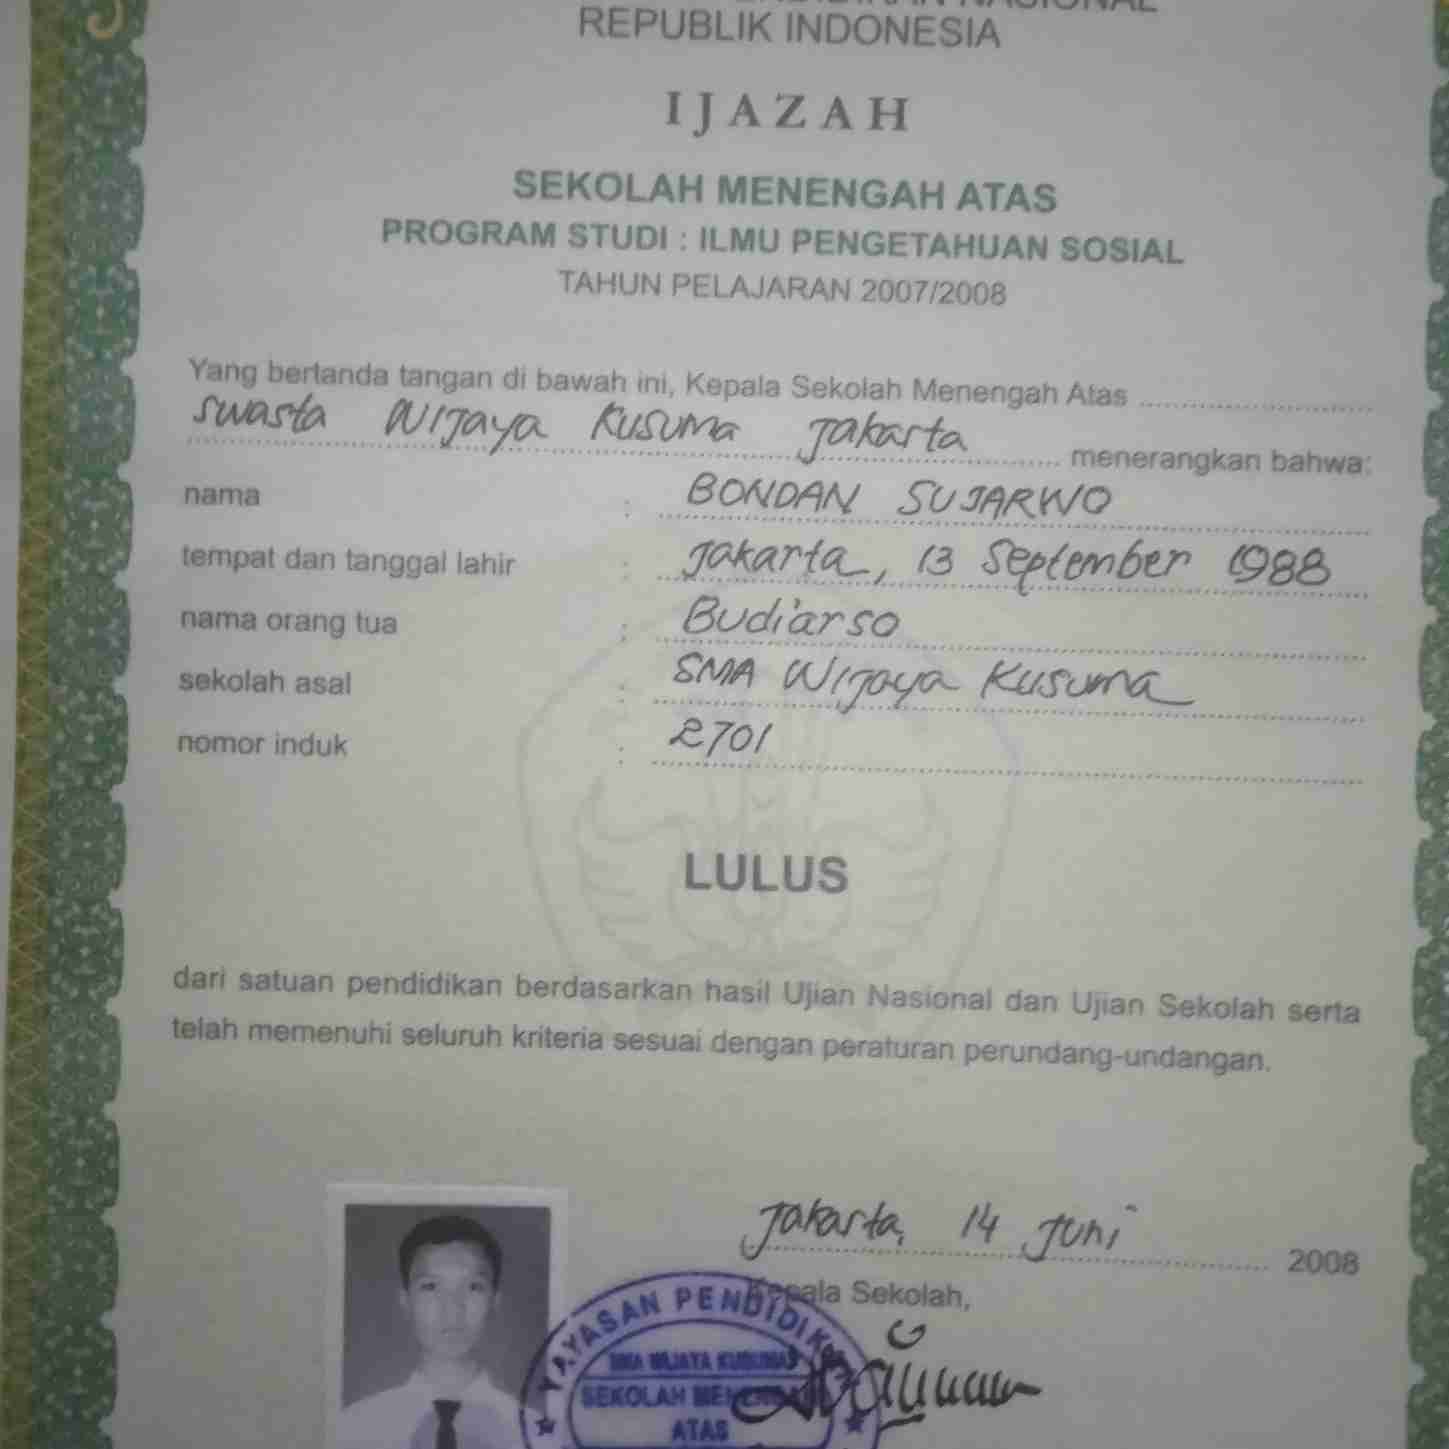 NASIONAL
REPUBLIK INDONESIA
IJAZAH
SEKOLAH MENENGAH ATAS
PROGRAM STUDI : ILMU PENGETAHUAN SOSIAL
TAHUN PELAJARAN 2007/2008
Yang bertanda tangan di bawah ini, Kepala Sekolah Menengah Atas
Swasta Wijaya Kusuma Jakarta menerangkan bahwa:
nama : BONDAN SUJARWO
tempat dan tanggal lahir : Jakarta, 13 September 1988
nama orang tua : Budiarso
sekolah asal : SMA Wijaya Kusuma
nomor induk : 2701
LULUS
dari satuan pendidikan berdasarkan hasil Ujian Nasional dan Ujian Sekolah serta
telah memenuhi seluruh kriteria sesuai dengan peraturan perundang-undangan.
Jakarta, 14 Juni 2008
Kepala Sekolah,
YAYASAN PENDIDIK
SMA WIJAYA KUSUMA
SEKOLAH MENENGAH
ATAS